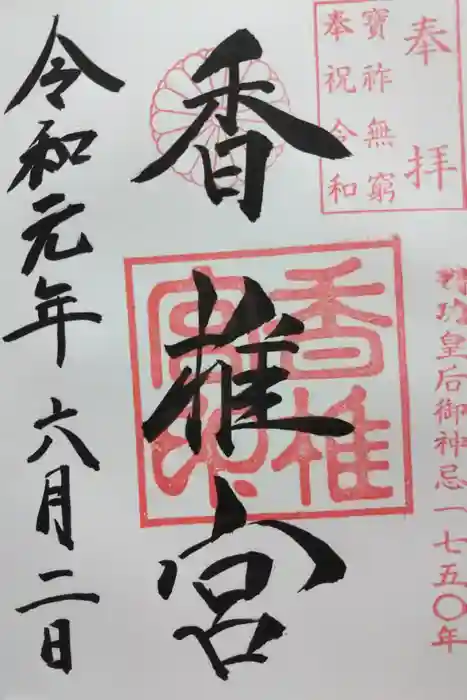 奉拝
寶祚無窮
奉祝令和
神功皇后御神忌一七五〇年
香椎宮
香椎宮印
令和元年六月二日